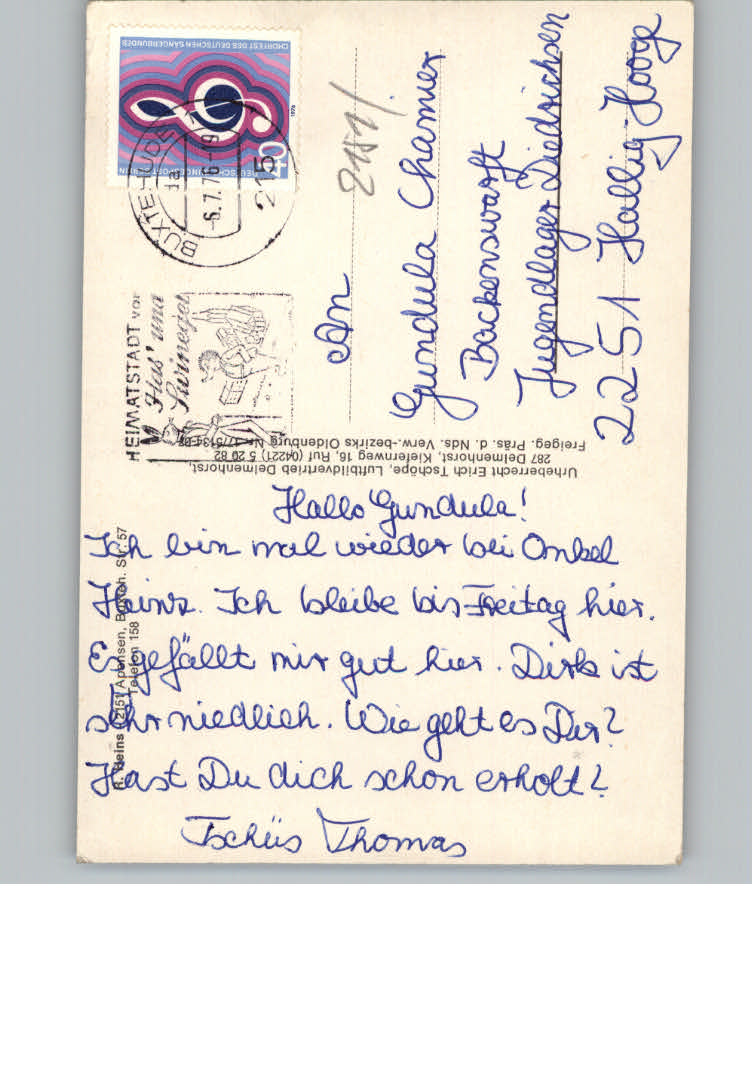 Hallo Gundula!
Ich bin mal wieder bei Onkel
Heinz. Ich bleibe bis Freitag hier.
Es gefällt mir gut hier. Dirk ist
sehr niedlich. Wie geht es Dir?
Hast Du dich schon erholt?
Tschüs Thomas
An
Gundula Chamier
Backenswarft
Jugendlager Diedrichsen
2251 Hallig-Hooge
2151/
CHORFEST DES DEUTSCHEN SÄNGERBUNDES
1976
40
DEUTSCHE BUNDESPOST BERLIN
BUXTEHUDE
1a
-6.7.76-19
215
HEIMATSTADT von
Has' und
Swinegel
Urheberrecht Erich Tschöpe, Luftbildvertrieb Delmenhorst,
287 Delmenhorst, Kiefernweg 16, Ruf (04221) 5 20 82
Freigeg. Präs. d. Nds. Verw.-bezirks Oldenburg Nr.
Heins, 2151 Apensen, Buxteh. Str. 57
Telefon 158